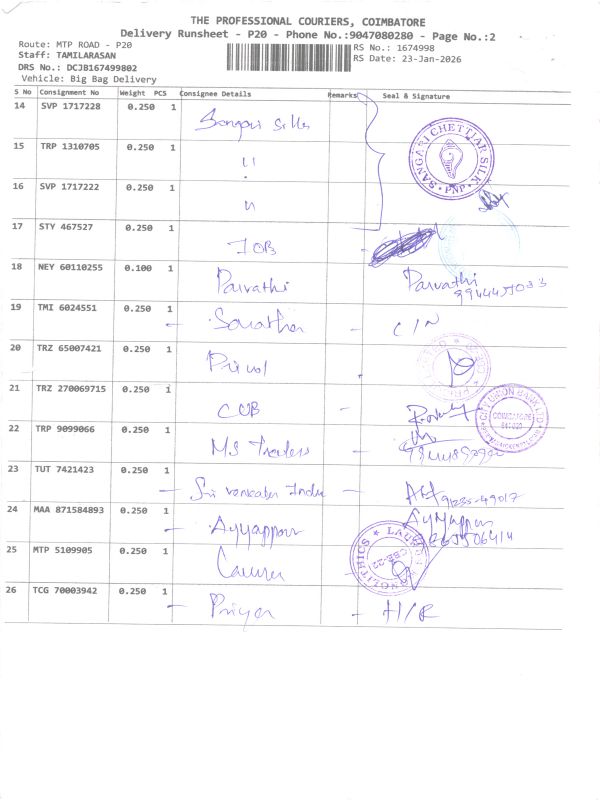 THE PROFESSIONAL COURIERS, COIMBATORE
Delivery Runsheet - P20 - Phone No.:9047080280 - Page No.:2
Route: MTP ROAD - P20
RS No.: 1674998
Staff: TAMILARASAN
RS Date: 23-Jan-2026
DRS No.: DCJB167499802
Vehicle: Big Bag Delivery
S No Consignment No Weight PCS Consignee Details Remarks Seal & Signature
14 SVP 1717228 0.250 1
SANGARI CHETTIAR SILK PNP
15 TRP 1310705 0.250 1 "
16 SVP 1717222 0.250 1 "
17 STY 467527 0.250 1 IOB
18 NEY 60110255 0.100 1 Parvathi Parvathi
19 TMI 6024551 0.250 1 - - C/N
20 TRZ 65007421 0.250 1
21 TRZ 270069715 0.250 1 CUB -
CITY UNION BANK LTD
22 TRP 9099066 0.250 1 MS Traders -
23 TUT 7421423 0.250 1 - Sri Venkates - 91235-49017
24 MAA 871584893 0.250 1 - Ayyappan Ayyappan
25 MTP 5109905 0.250 1
26 TCG 70003942 0.250 1 - Priya - H/R